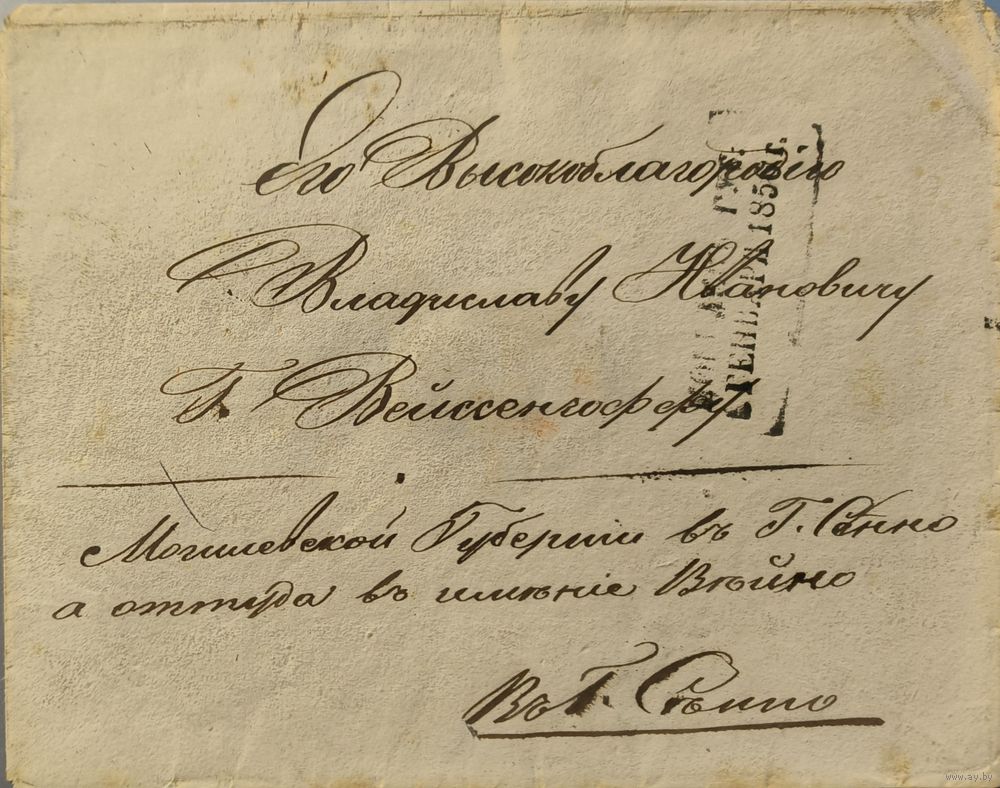 Его Высокоблагородію
Владиславу Ивановичу
Г. Вейссенгоферу
Могилевской Губерніи въ Г. Сѣнно
а оттуда въ имѣніе Вѣйно
Въ Г. Сѣнно
ГЕНВАРЯ 185
www.ay.by